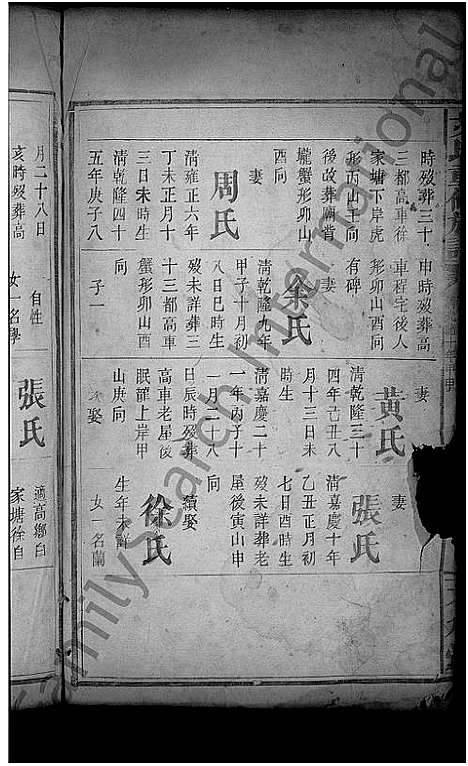 時歿葬三十
三都高車徐
家塘下岸虎
形丙山壬向
後改葬廟背
壠蟹形卯山
酉向
妻
周氏
清雍正六年
丁未正月十
三日未時生
清乾隆四十
五年庚子八
申時歿葬高
車程宅後人
形卯山酉向
有碑
妻
余氏
清乾隆九年
甲子十月初
八日巳時生
歿未詳葬三
十三都高車
蟹形卯山酉
向
子一
妻
黃氏
清乾隆三十
四年己丑八
月十三日未
時生
清嘉慶二十
一年丙子十
一月二十八
日辰時歿葬
高車老屋後
眠龍上岸甲
山庚向
娶
妻
張氏
清嘉慶十年
乙丑正月初
七日酉時生
歿未詳葬老
屋後寅山申
向
續娶
徐氏
生年未詳
女一名蘭
月二十八日
亥時歿葬高
自性
女一名學
張氏
適高鄉白
家塘徐自
FamilySearch International